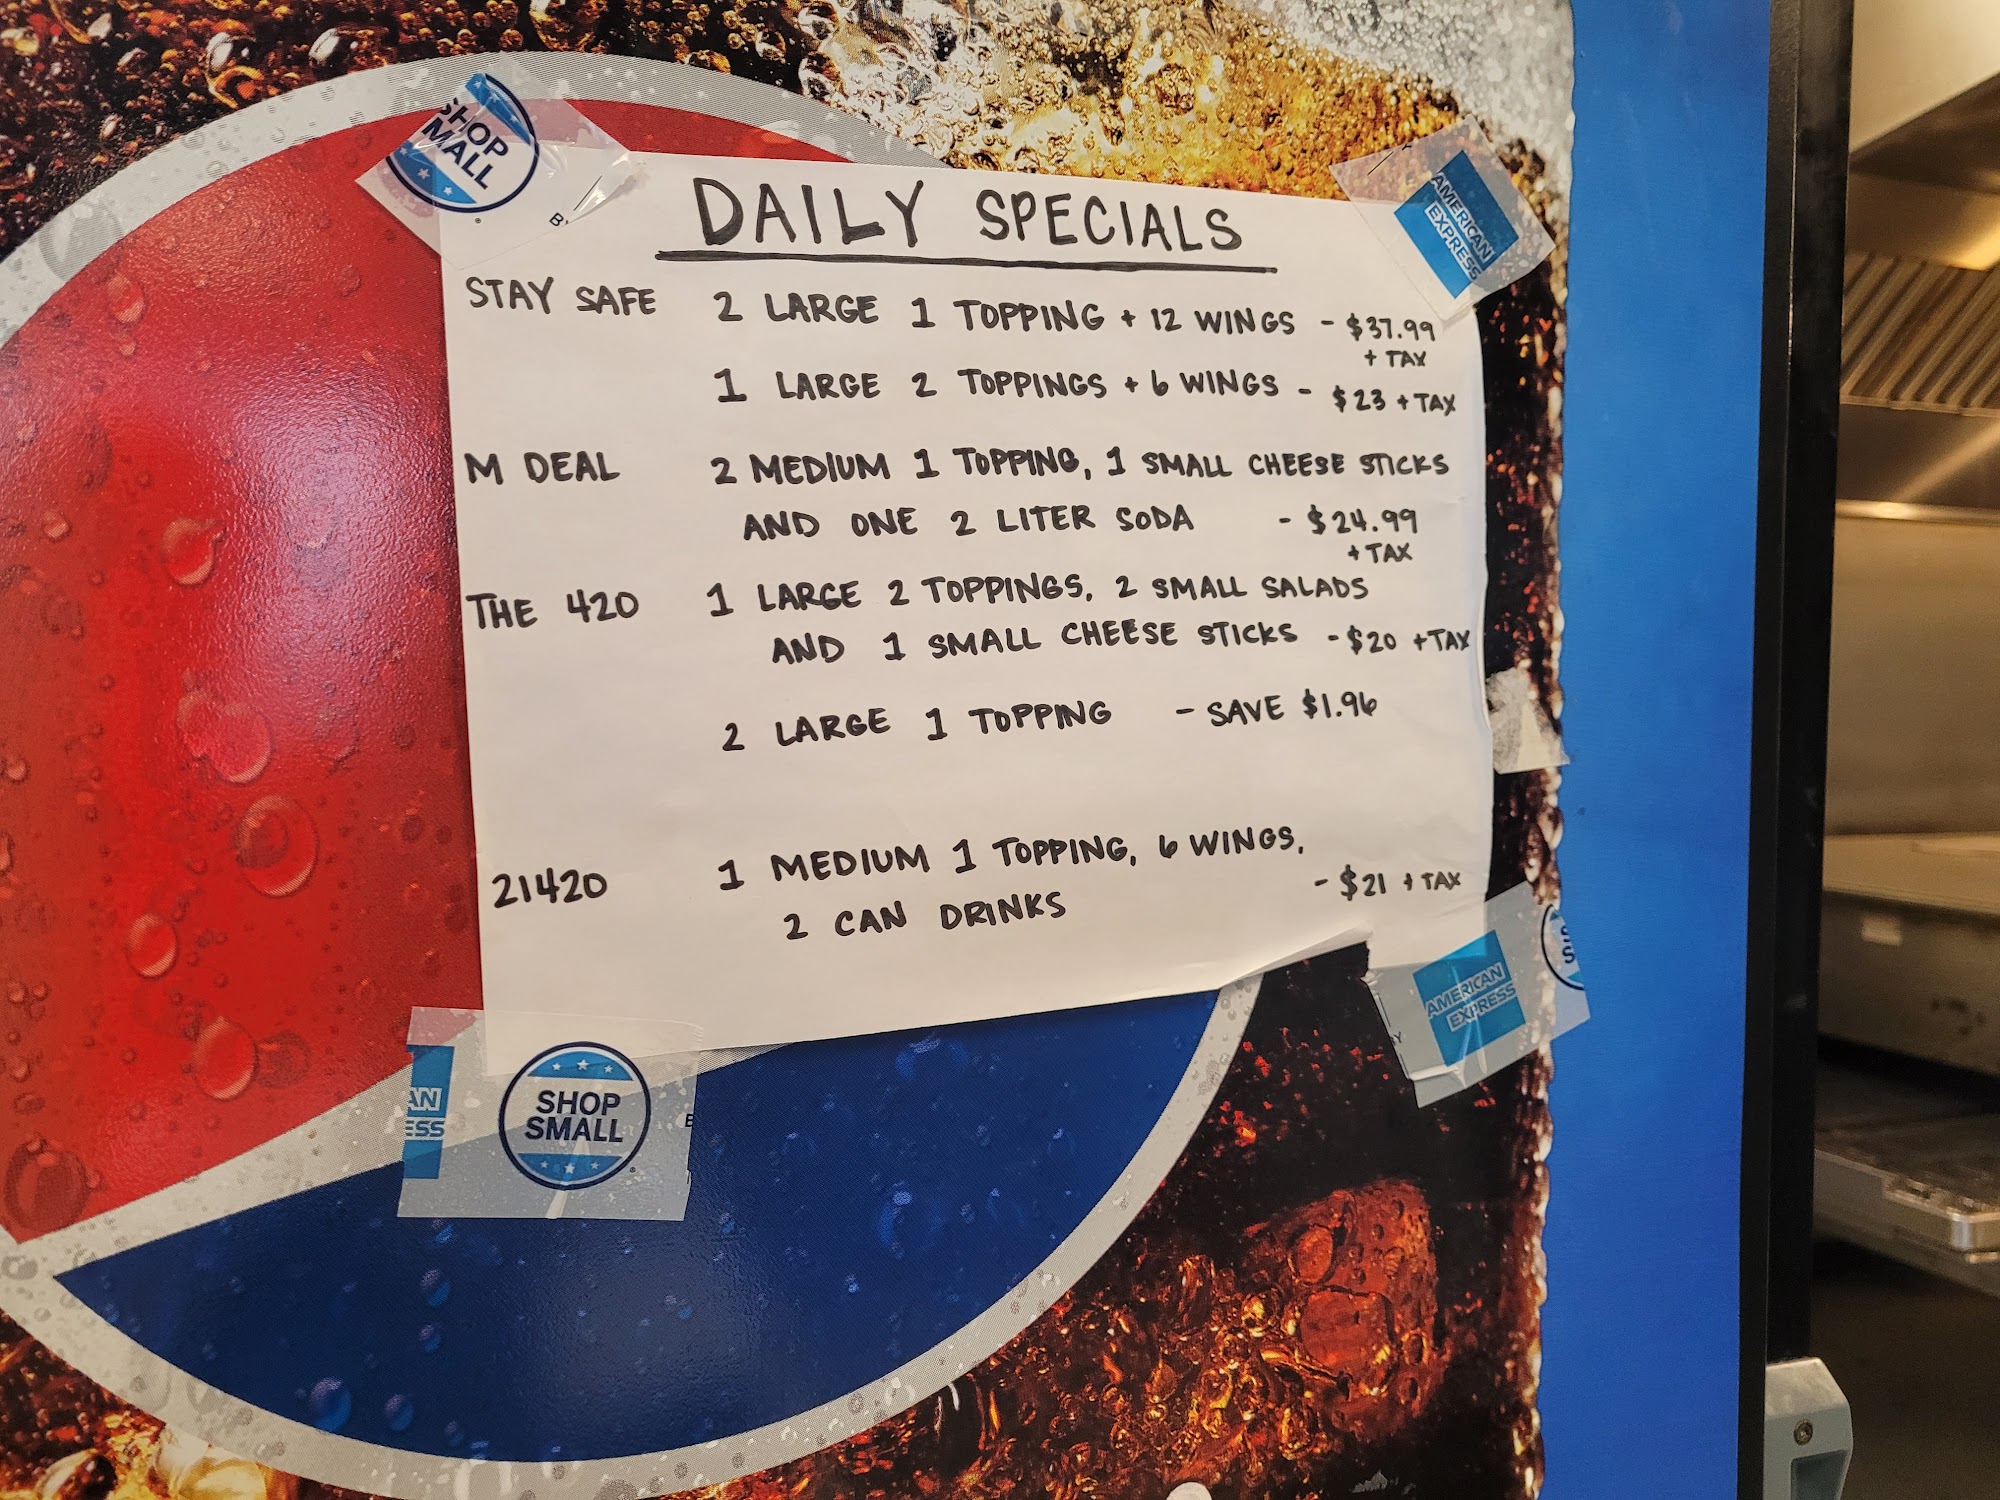 DAILY SPECIALS
STAY SAFE 2 LARGE 1 TOPPING + 12 WINGS - $37.99
+ TAX
1 LARGE 2 TOPPINGS + 6 WINGS - $23 + TAX
M DEAL 2 MEDIUM 1 TOPPING, 1 SMALL CHEESE STICKS
AND ONE 2 LITER SODA - $24.99
+ TAX
THE 420 1 LARGE 2 TOPPINGS, 2 SMALL SALADS
AND 1 SMALL CHEESE STICKS - $20 + TAX
2 LARGE 1 TOPPING - SAVE $1.96
21420 1 MEDIUM 1 TOPPING, 6 WINGS,
2 CAN DRINKS - $21 + TAX
SHOP
MALL
AMERICAN
EXPRESS
AN
ESS
SHOP
SMALL
AMERICAN
EXPRESS